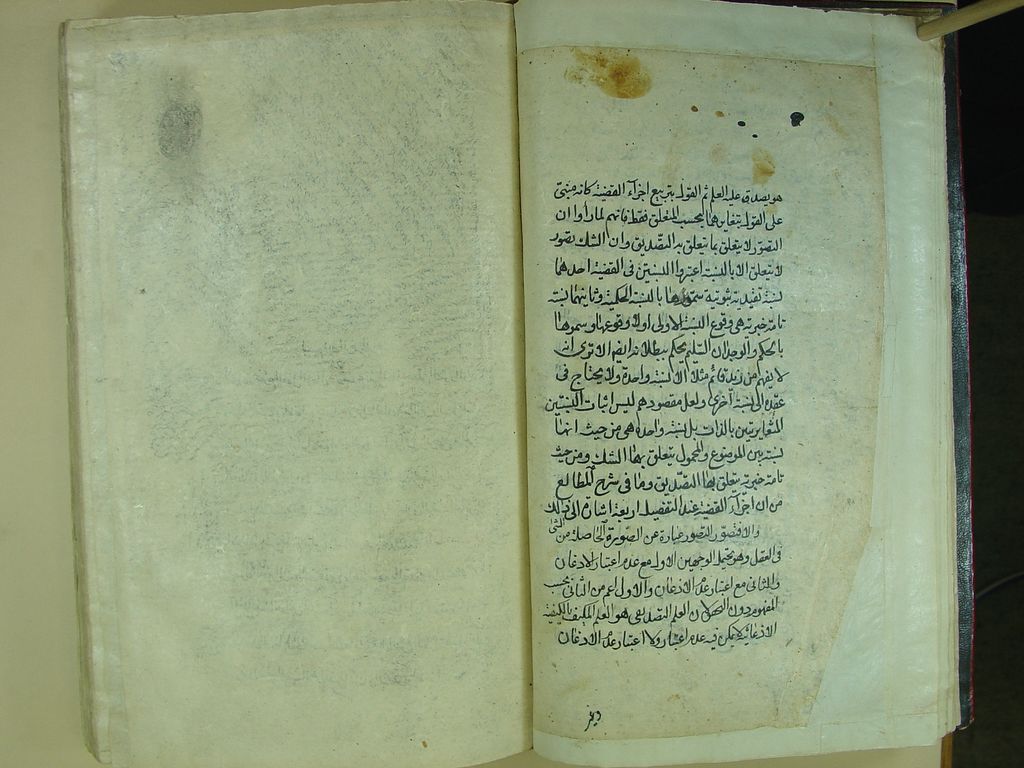 هو يصدق عليه العلم ثم القول بتربيع اجزآء القضية كانه مبنى
على القول بتغايرهما بحسب المتعلق فقط فانهم لما رأوا ان
التصور لا يتعلق بما تتعلق به التصديق وان الشك تصور
لا يتعلق الا بالنسبة اعتبروا النسبتين فى القضية احدهما
نسبة تقيدية ثبوتية سموها بالنسبة الحكمية وثانيهما نسبة
تامة خبرية هى وقوع النسبة الاولى اولا وقوعها وسموها
بالحكم والوجدان السليم يحكم ببطلانه ايضا الا ترى انه
لا يفهم من زيد قائم مثلا الا نسبة واحدة ولا يحتاج فى
عقده الى نسبة اخرى ولعل مقصودهم ليس اثبات النسبتين
المتغايرتين بالذات بل نسبة واحدة هى من حيث انها
نسبة بين الموضوع والمحمول يتعلق بها الشك ومن حيث
تامة خبرية يتعلق بها التصديق وما فى شرح المطالع
من ان اجزآء القضية عند التفصيل اربعة اشارة الى ذلك
والا فتصور التصور عبارة عن الصورة الحاصلة من الشئ
فى العقل وهو يحتمل الوجهين الاول مع عدم اعتبار الاذعان
والثانى مع اعتبار عدم الاذعان والاول اعم من الثانى بحسب
المفهوم دون لان العلم التصديقى هو العلم المكيف بالكيفية
الاذعانية لا يمكن فيه عدم اعتبار ولا اعتبار عدم الاذعان